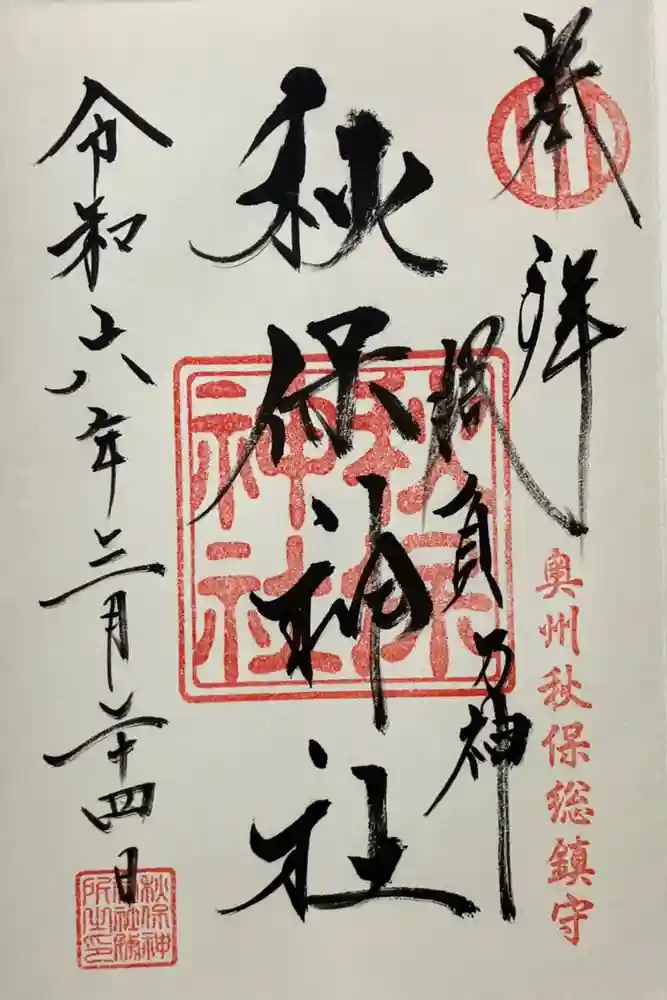 奉拝
奥州秋保総鎮守
勝負の神
秋保神社
秋保神社
令和六年三月二十四日
秋保神社社務所之印